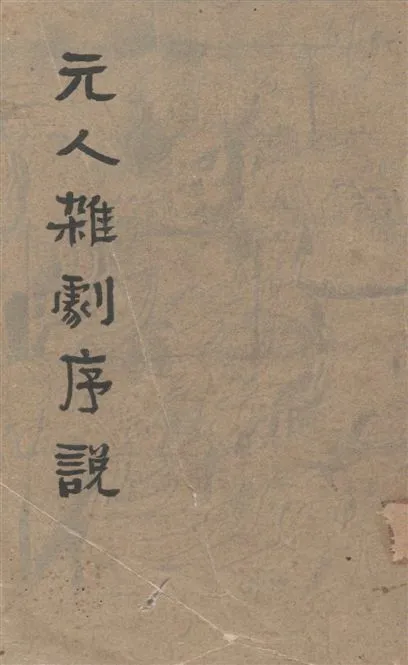 元人雜劇序説